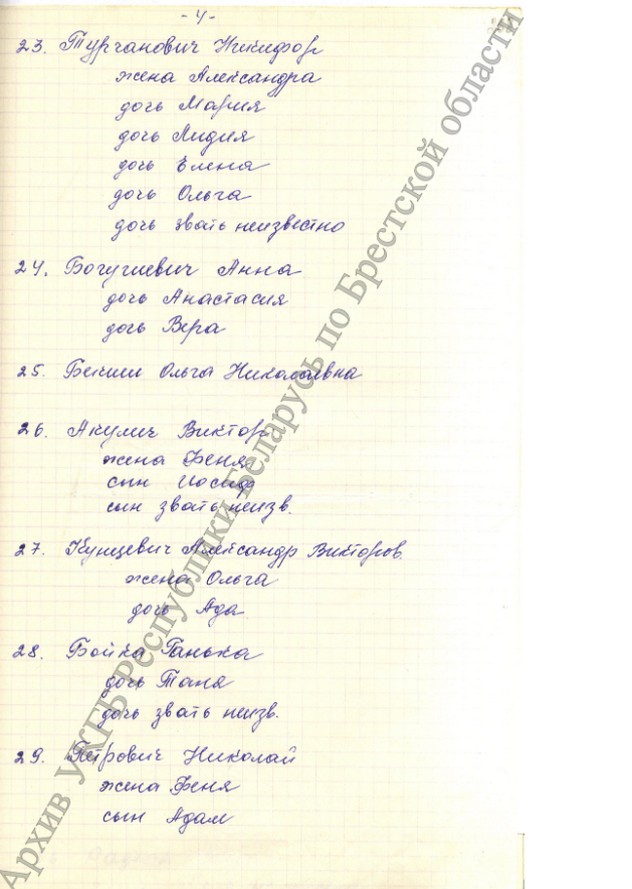 - 4 -
23. Турчанович Никифор
жена Александра
дочь Мария
дочь Лидия
дочь Елена
дочь Ольга
дочь звать неизвестно
24. Богушевич Анна
дочь Анастасия
дочь Вера
25. Бекиш Ольга Николаевна
26. Акулич Виктор
жена Феня
сын Иосиф
сын звать неизв.
27. Кунцевич Александр Викторов.
жена Ольга
дочь Ада
28. Бойка Ганька
дочь Таня
дочь звать неизв.
29. Петрович Николай
жена Феня
сын Адам
Архив УКГБ Республики Беларусь по Брестской области